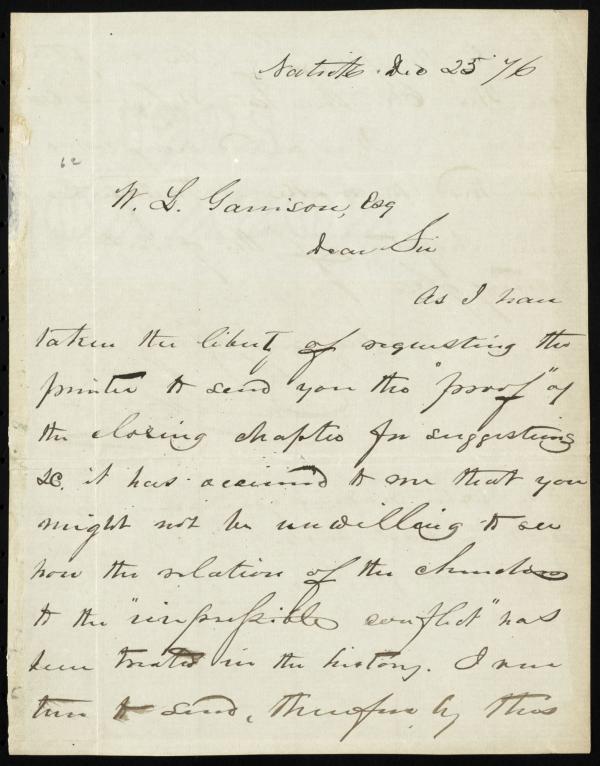 Natick Dec 25 '76
62
W. L. Garrison, Esq
Dear Sir
As I have
taken the liberty of requesting the
printer to send you the "proof" of
the closing chapter for suggestions
&c. it has occurred to me that you
might not be unwilling to see
how the relation of the churches
to the "irrepressible conflict" has
been treated in the history. I ven
ture to send, therefore by this